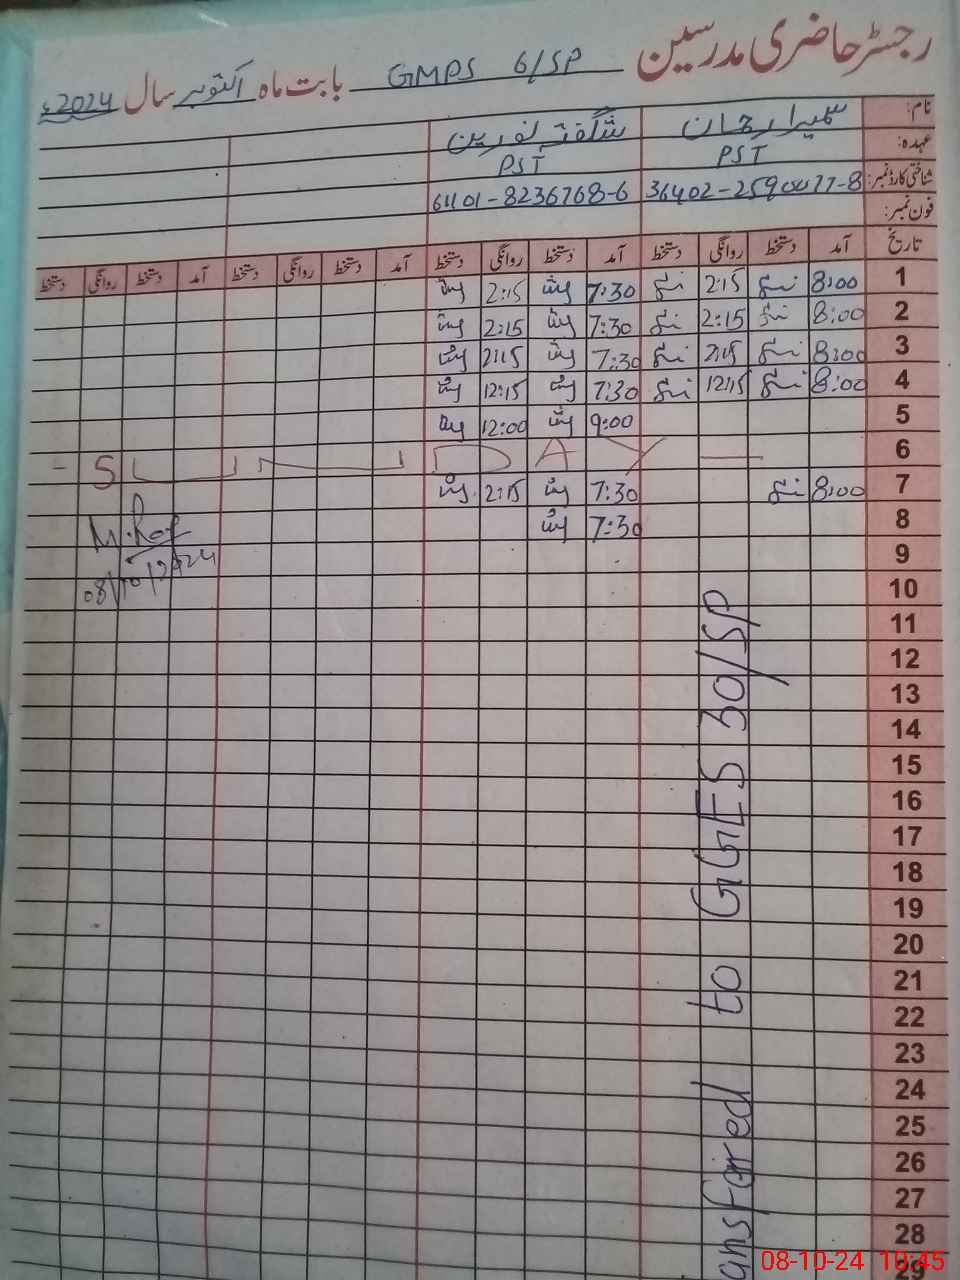 رجسٹر حاضری مدرسین GMPS 6/SP بابت ماہ اکتوبر سال 2024ء
نام: سمیرا رحمان شگفتہ نورین
عہدہ: PST PST
شناختی کارڈ نمبر: 61101-8236768-6
فون نمبر:
تاریخ آمد دستخط روانگی دستخط آمد دستخط روانگی دستخط آمد دستخط روانگی دستخط آمد دستخط روانگی دستخط
1 8:00 2:15 7:30 2:15
2 8:00 2:15 7:30 2:15
3 8:00 2:15 7:30 2:15
4 8:00 12:15 7:30 12:15
5 9:00 12:00
6 - SUNDAY -
7 8:00 7:30 2:15
8 7:30
08/10/2024
9
10
11
12
13
14
15
16
17
18
19
20
21
22
23
24
25
26
27
28
29
ansfaired to GGES 30/SP
08-10-24 10:45